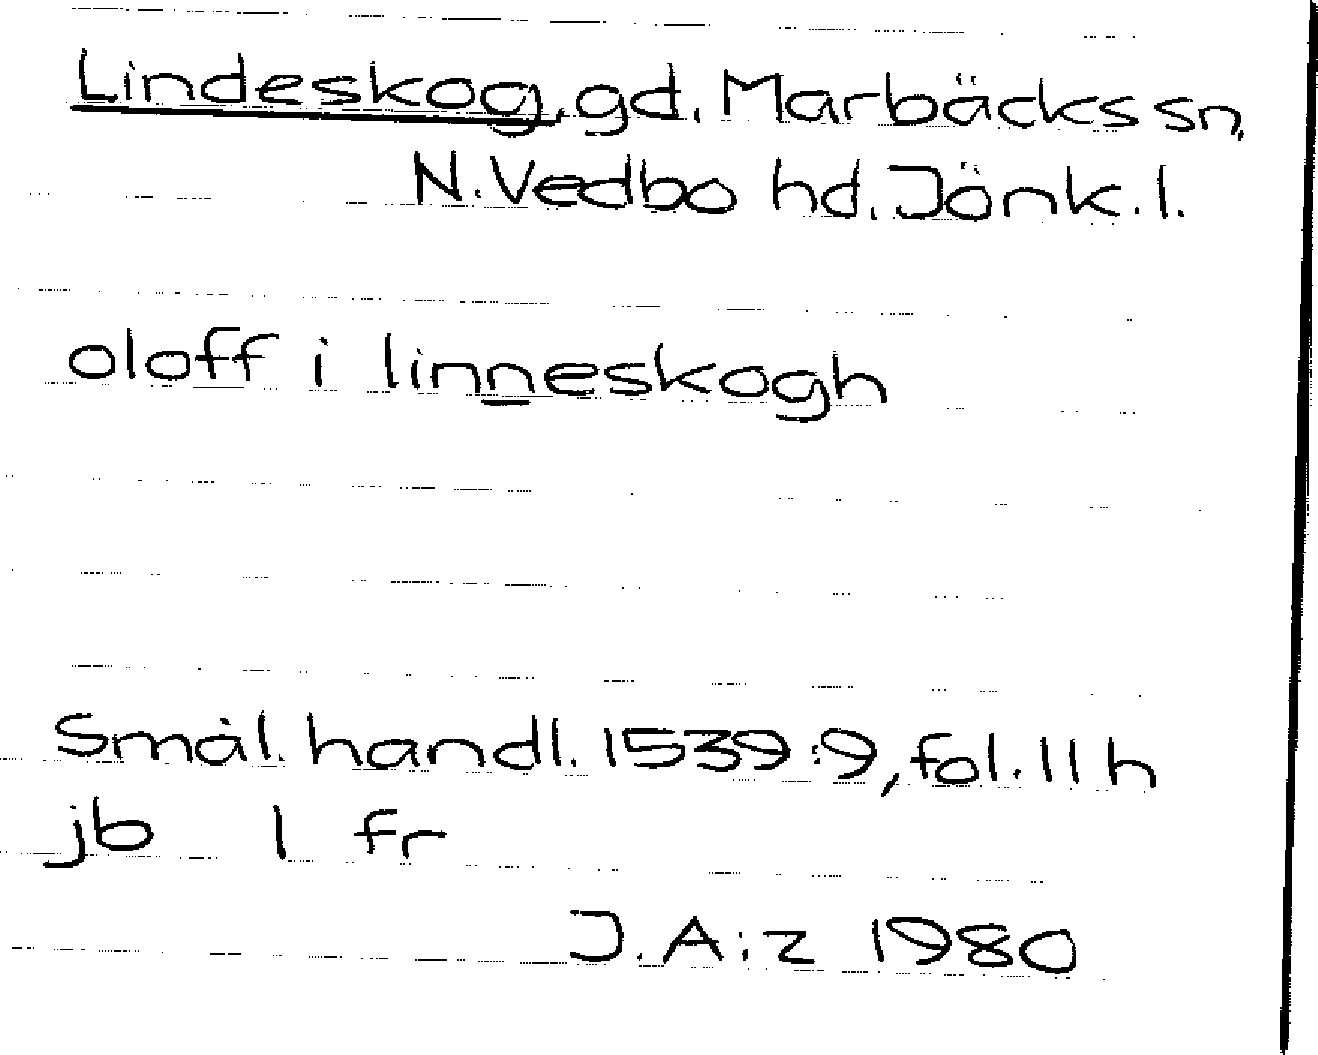 Lindeskog, gd. Marbäcks sn,
N. Vedbo hd. Jönk. l.
oloff i linneskogh
Smål. handl. 1539:9, fol. 11 h
jb 1 fr
J.A:z 1980